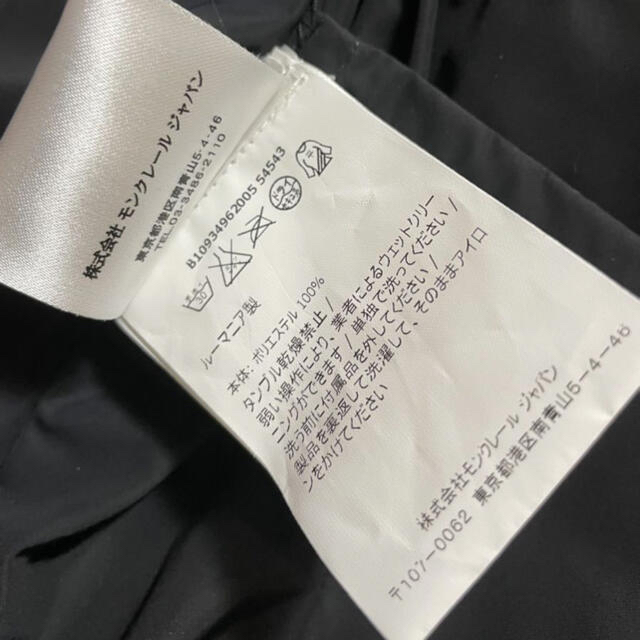 株式会社 モンクレール ジャパン
東京都港区南青山5-4-46
TEL:03-3486-2110
B10934962005 54543
ルーマニア製
本体: ポリエステル 100%
タンブル乾燥禁止 /
弱い操作により、業者によるウェットクリー
ニングができます / 単独で洗ってください /
洗う前に付属品を外してください /
製品を裏返して洗濯して、そのままアイロ
ンをかけてください
株式会社モンクレール ジャパン
〒107-0062 東京都港区南青山5-4-46